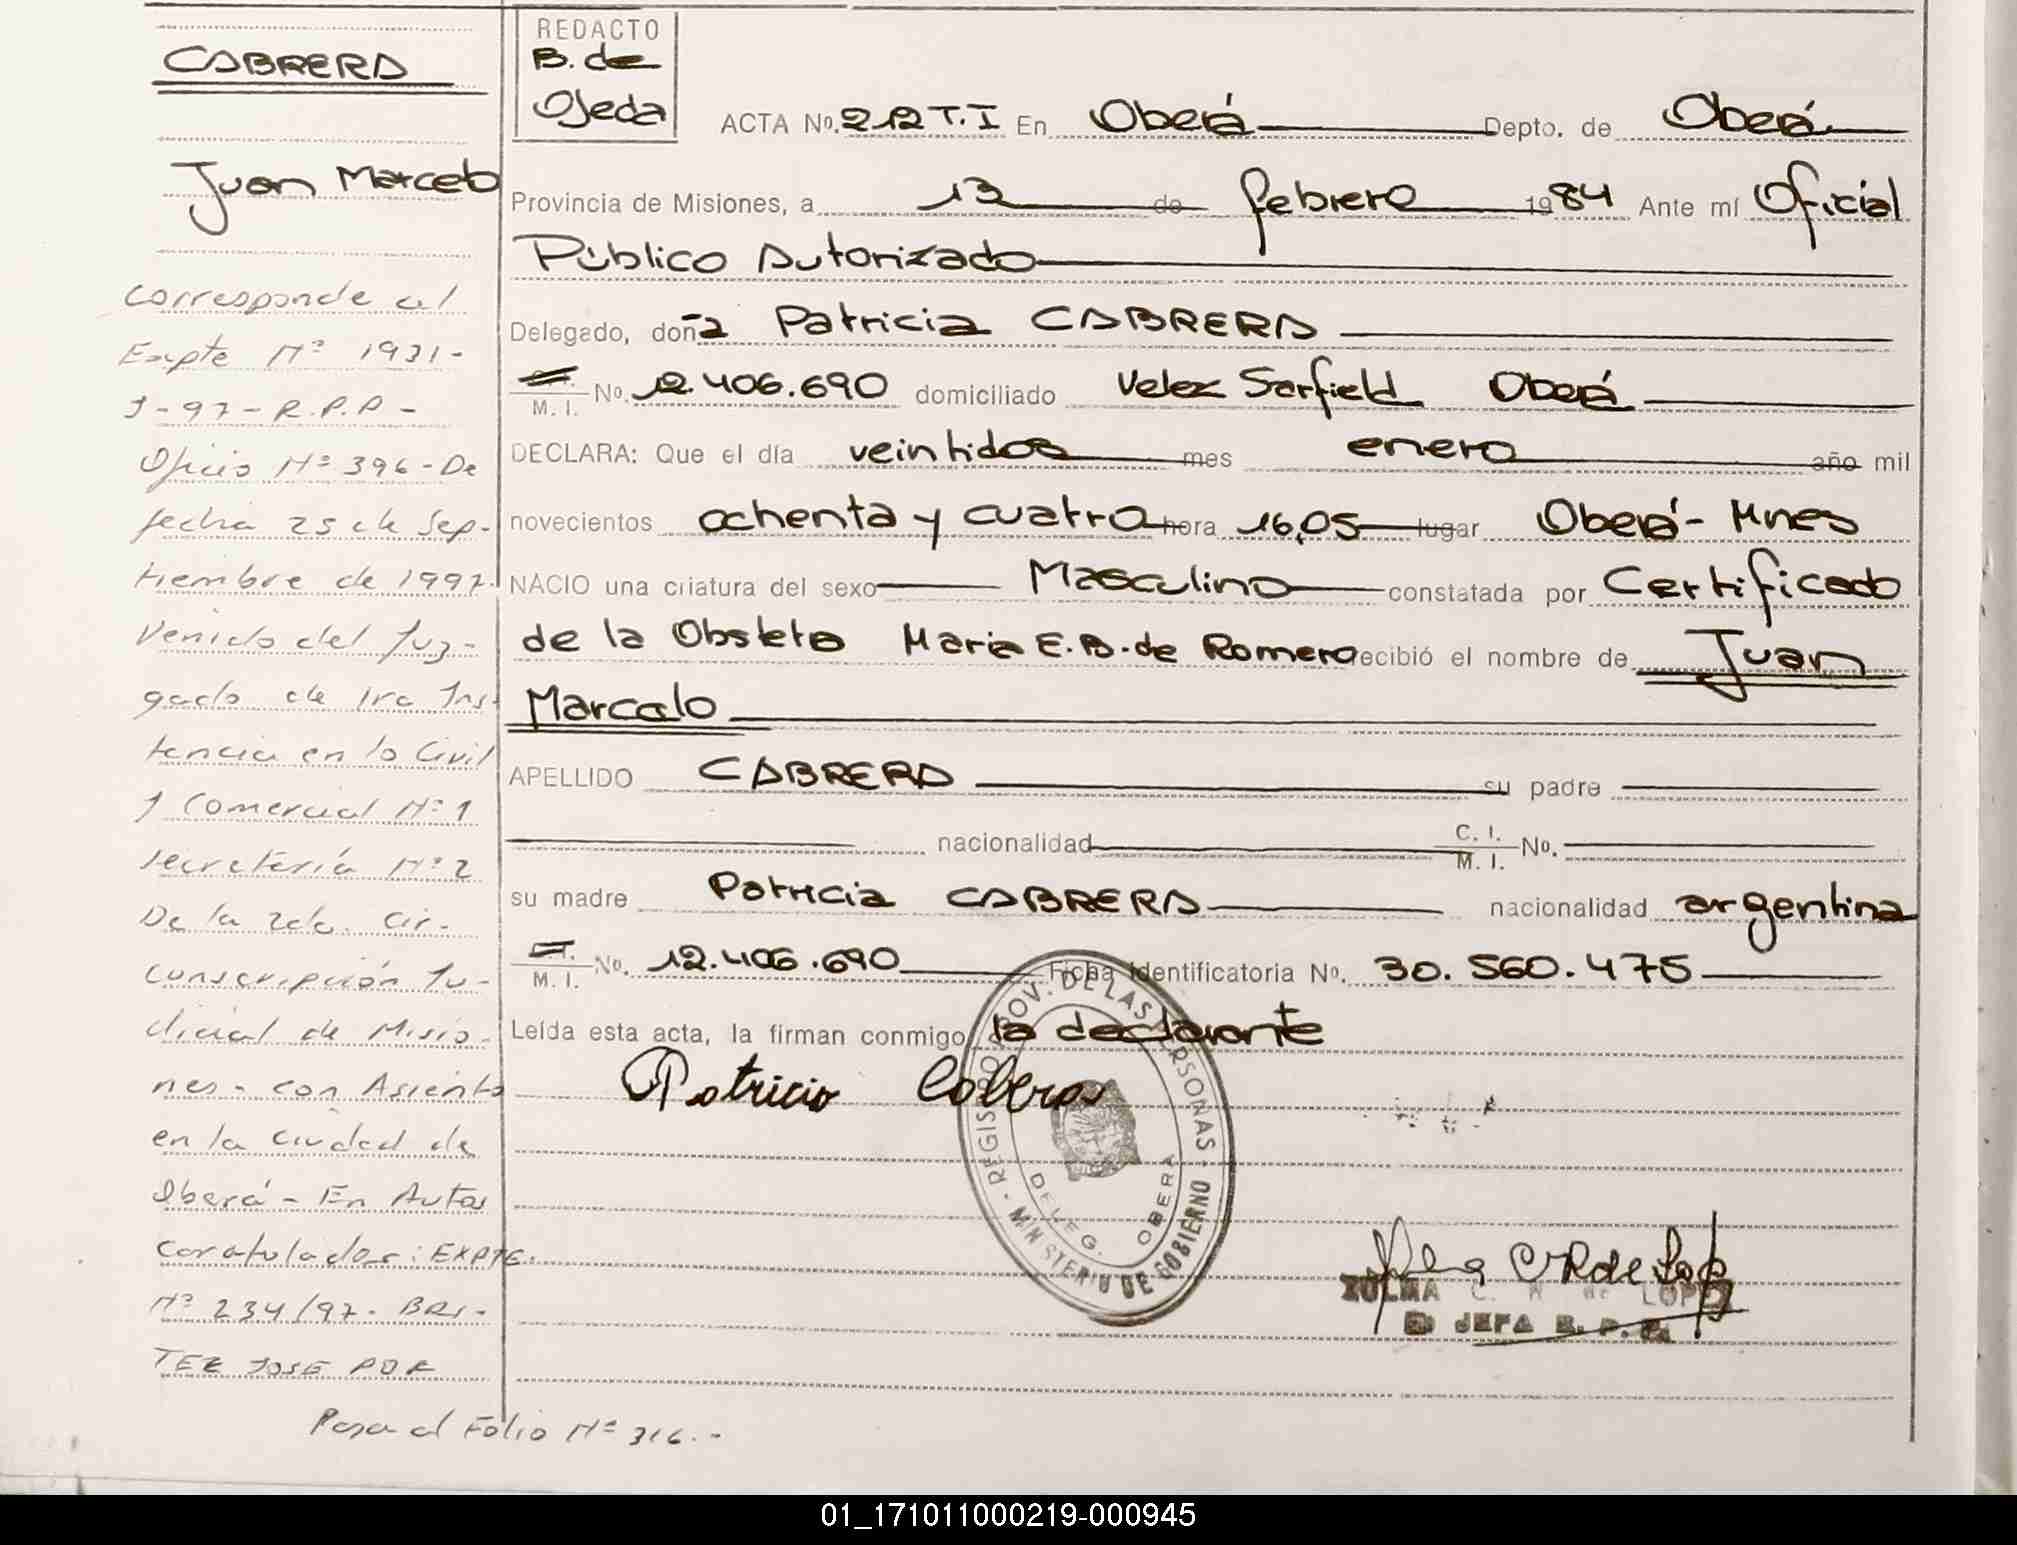 CABRERA
Juan Marcelo
Corresponde al
Expte Nº 1931-
J-97-R.P.P-
Oficio Nº 396-De
fecha 25 de Sep-
tiembre de 1997.
Venido del Juz-
gado de 1ra Ins-
tancia en lo Civil
y Comercial Nº 1
Secretaría Nº 2
De la 2da. Cir-
cunscripción Ju-
dicial de Misio-
nes- con Asiento
en la Ciudad de
Oberá- En Autos
caratulados: EXPTE.
Nº 234/97- BRI-
TEZ JOSE POR
Pasa al Folio Nº 316.-
REDACTO
B. de
Ojeda
ACTA No. 212 T.I En Oberá Depto. de Oberá
Provincia de Misiones, a 13 de febrero 1984 Ante mí Oficial
Público Autorizado
Delegado, doña Patricia CABRERA
M. I. No. 12.406.690 domiciliado Velez Sarfield Oberá
DECLARA: Que el día veintidos mes enero año mil
novecientos ochenta y cuatro hora 16,05 lugar Oberá- Mnes
NACIO una criatura del sexo Masculino constatada por Certificado
de la Obsteta Maria E.B. de Romero recibió el nombre de Juan
Marcelo
APELLIDO CABRERA su padre
nacionalidad C. I. M. I. No.
su madre Patricia CABRERA nacionalidad argentina
M. I. No. 12.406.690 Ficha identificatoria No. 30.560.475
Leída esta acta, la firman conmigo la declarante
Patricia Cabrera
REGISTRO PROV. DE LAS PERSONAS
DELEG. OBERA
MINISTERIO DE GOBIERNO
ZULMA C. R. de LOPEZ
JEFA R. P. P.
01_171011000219-000945